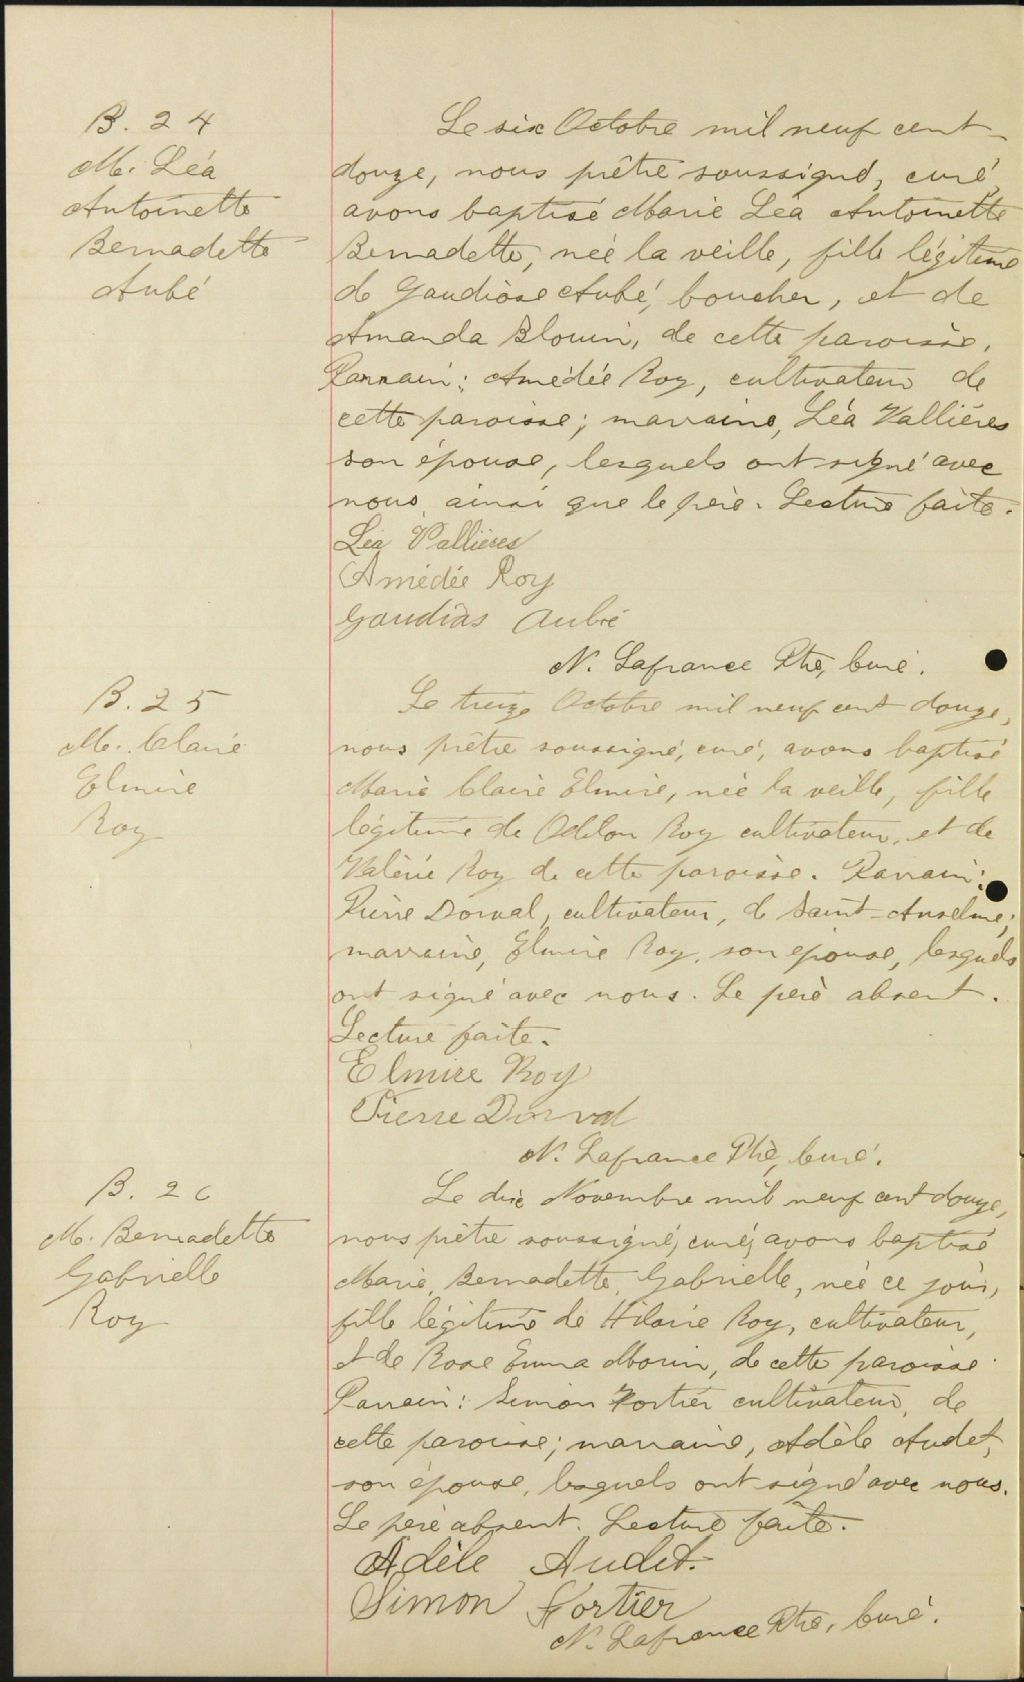 B. 24
M. Léa
Antoinette
Bernadette
Aubé
Le six Octobre mil neuf cent
douze, nous prêtre soussigné, curé,
avons baptisé Marie Léa Antoinette
Bernadette, née la veille, fille légitime
de Gaudiose Aubé, boucher, et de
Amanda Blouin, de cette paroisse.
Parrain: Amédée Roy, cultivateur de
cette paroisse; marraine, Léa Vallières
son épouse, lesquels ont signé avec
nous, ainsi que le père. Lecture faite.
Léa Vallières
Amédée Roy
Gaudias Aubé
N. Lafrance Ptre, Curé.
B. 25
M. Claire
Elmire
Roy
Le treize Octobre mil neuf cent douze,
nous prêtre soussigné, curé, avons baptisé
Marie Claire Elmire, née la veille, fille
légitime de Odilon Roy cultivateur, et de
Valérie Roy de cette paroisse. Parrain:
Pierre Dorval, cultivateur, de Saint-Anselme;
marraine, Elmire Roy, son épouse, lesquels
ont signé avec nous. Le père absent.
Lecture faite.
Elmire Roy
Pierre Dorval
N. Lafrance Ptre, Curé.
B. 26
M. Bernadette
Gabrielle
Roy
Le dix Novembre mil neuf cent douze,
nous prêtre soussigné, curé, avons baptisé
Marie, Bernadette, Gabrielle, née ce jour,
fille légitime de Hilaire Roy, cultivateur,
et de Rose Emma Morin, de cette paroisse.
Parrain: Simon Fortier cultivateur, de
cette paroisse; marraine, Adèle Audet,
son épouse, lesquels ont signé avec nous.
Le père absent. Lecture faite.
Adèle Audet.
Simon Fortier
N. Lafrance Ptre, Curé.